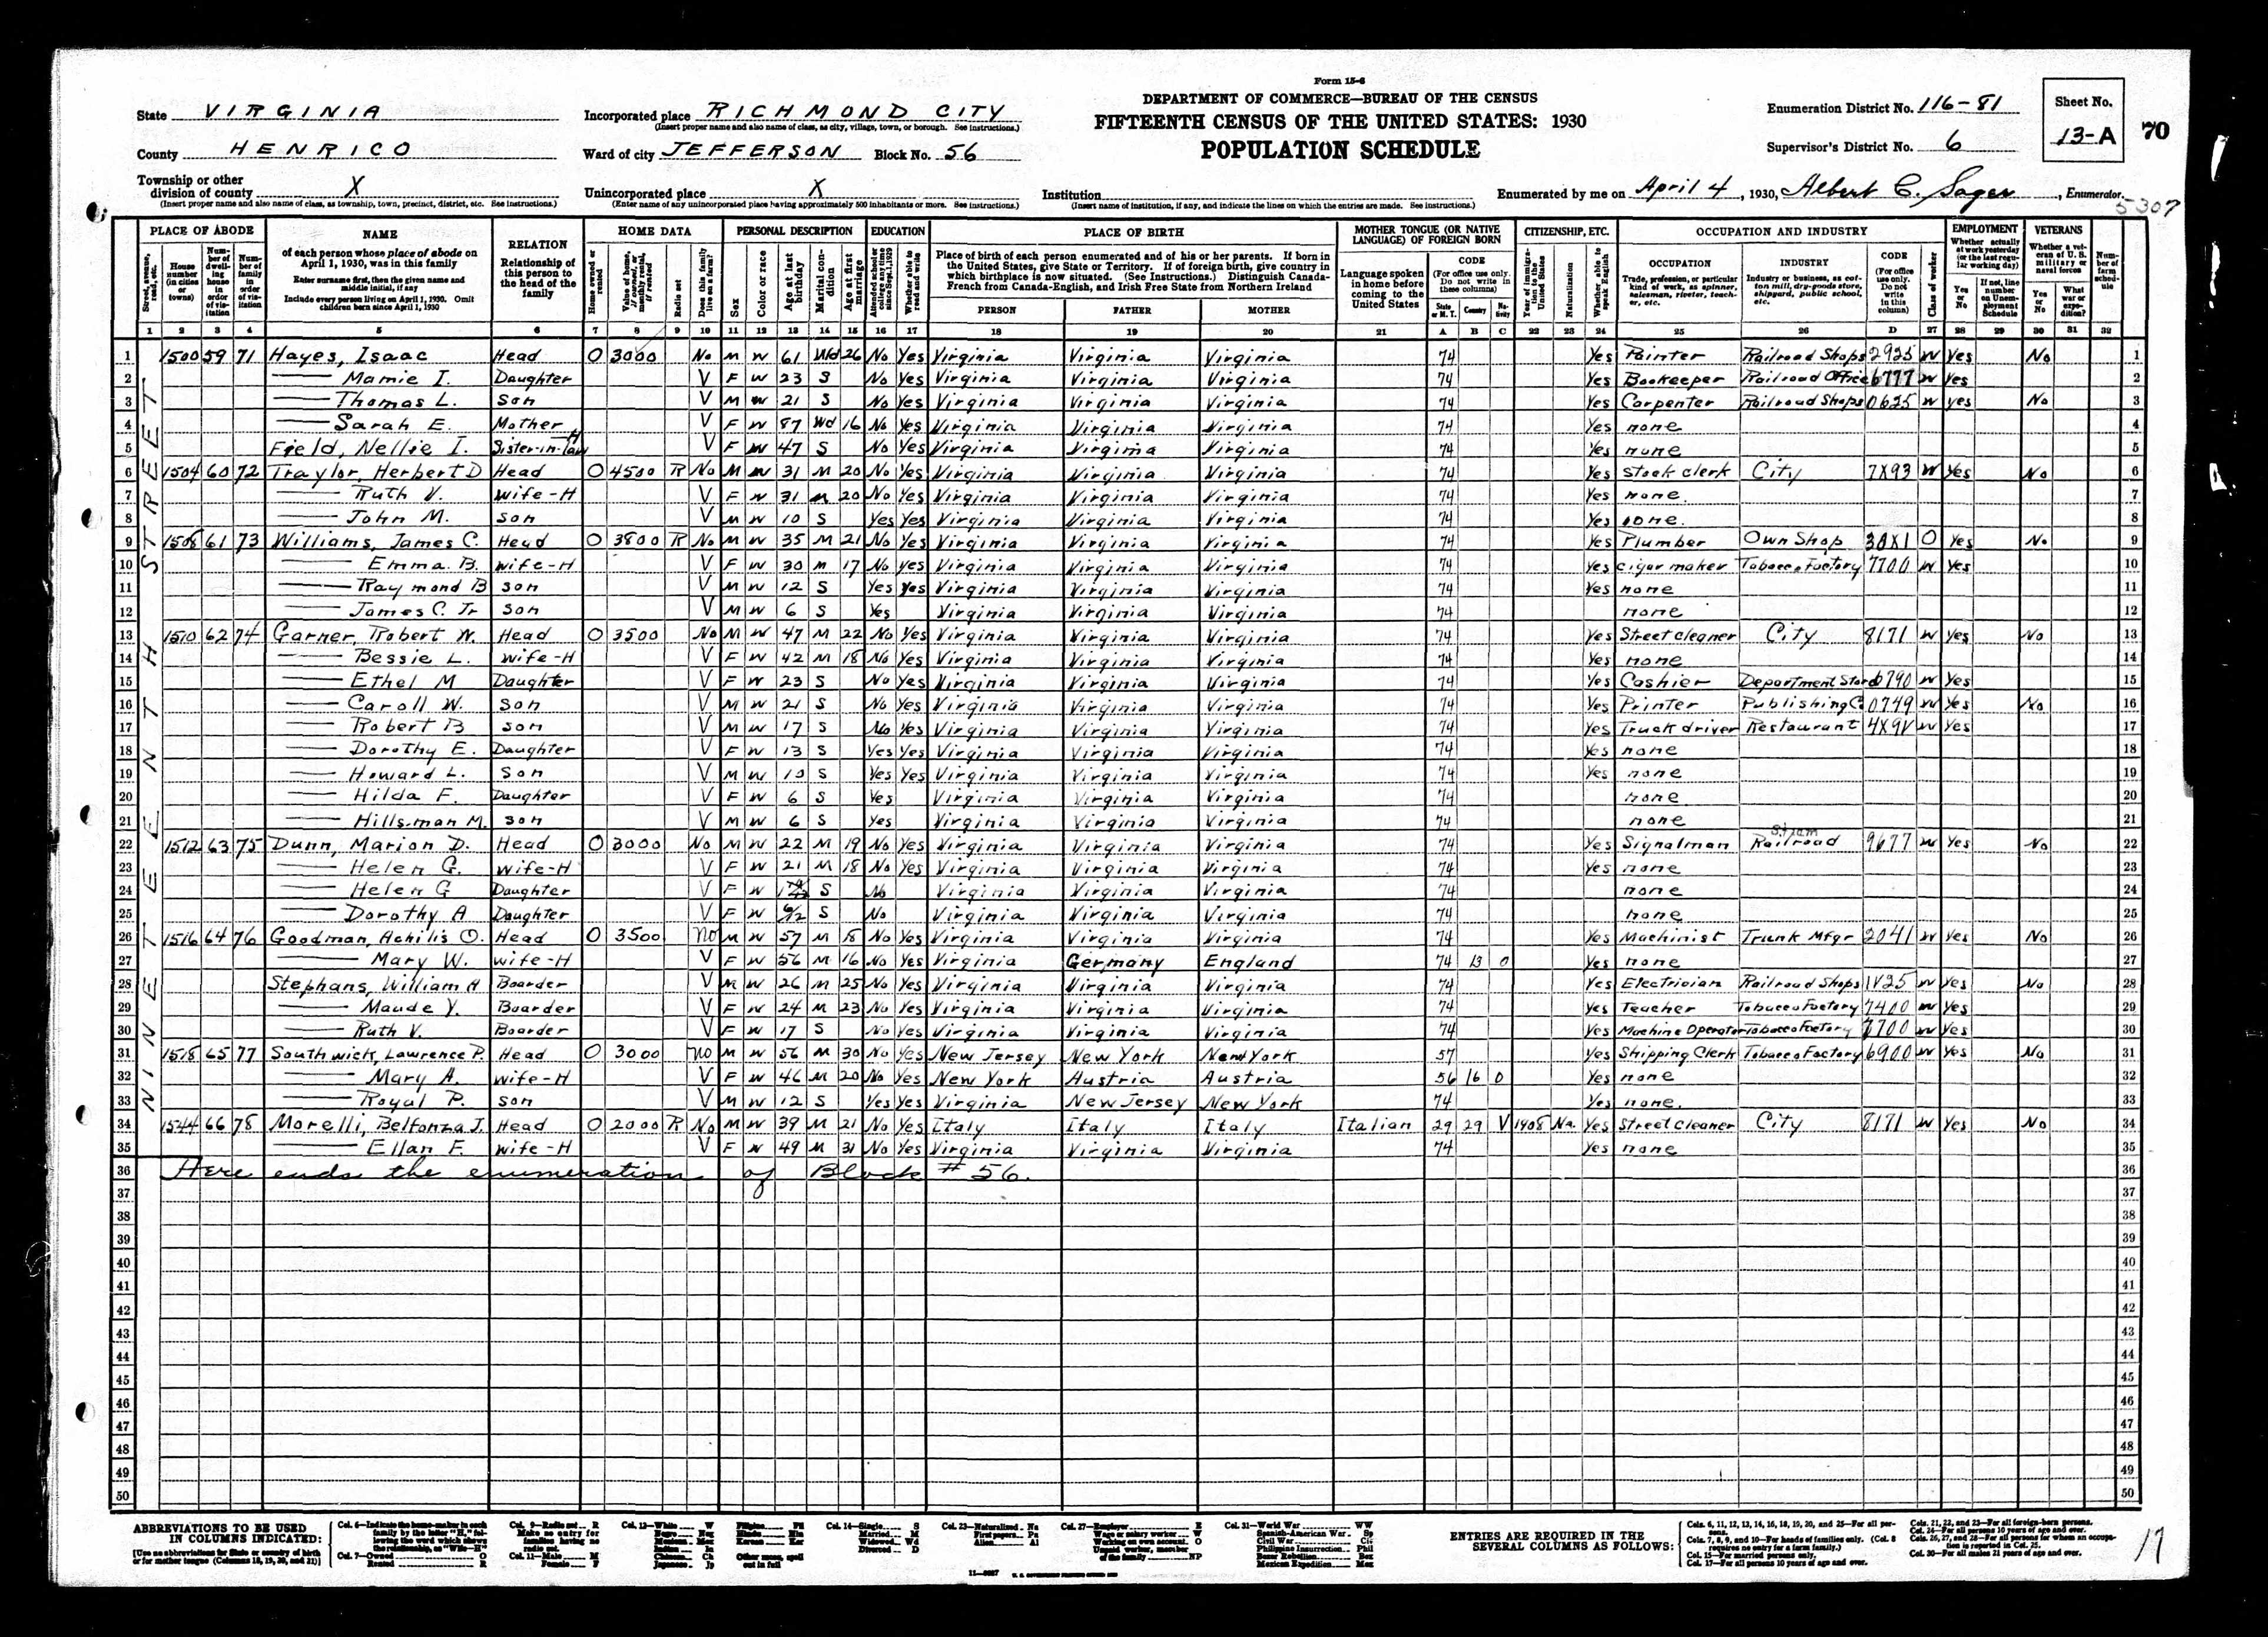 Form 15-6
DEPARTMENT OF COMMERCE—BUREAU OF THE CENSUS
FIFTEENTH CENSUS OF THE UNITED STATES: 1930
POPULATION SCHEDULE
State VIRGINIA
County HENRICO
Township or other division of county X
(Insert proper name and also name of class, as township, town, precinct, district, etc. See instructions.)
Incorporated place RICHMOND CITY
(Insert proper name and also name of class, as city, village, town, or borough. See instructions.)
Ward of city JEFFERSON Block No. 56
Unincorporated place X
(Enter name of any unincorporated place having approximately 500 inhabitants or more. See instructions.)
Institution
(Insert name of institution, if any, and indicate the lines on which the entries are made. See instructions.)
Enumeration District No. 116-81
Supervisor's District No. 6
Sheet No. 13-A
70
Enumerated by me on April 4, 1930, Albert C. Sager, Enumerator.
5307
PLACE OF ABODE NAME RELATION HOME DATA PERSONAL DESCRIPTION EDUCATION PLACE OF BIRTH MOTHER TONGUE (OR NATIVE LANGUAGE) OF FOREIGN BORN CITIZENSHIP, ETC. OCCUPATION AND INDUSTRY EMPLOYMENT VETERANS
NINETEENTH STREET
1 1500 59 71 Hayes, Isaac Head O 3000 No M W 61 Wd 26 No Yes Virginia Virginia Virginia 74 Yes Painter Railroad Shops 2925 W Yes No 1
2 Mamie I. Daughter V F W 23 S No Yes Virginia Virginia Virginia 74 Yes Bookeeper Railroad Office 6777 W Yes 2
3 Thomas L. Son V M W 21 S No Yes Virginia Virginia Virginia 74 Yes Carpenter Railroad Shops 0625 W yes No 3
4 Sarah E. Mother V F W 87 Wd 16 No Yes Virginia Virginia Virginia 74 Yes none 4
5 Field, Nellie I. Sister-in-law H V F W 47 S No Yes Virginia Virginia Virginia 74 Yes none 5
6 1504 60 72 Traylor, Herbert D Head O 4500 R No M W 31 M 20 No Yes Virginia Virginia Virginia 74 Yes Stock clerk City 7X93 W Yes No 6
7 Ruth V. Wife-H V F W 31 M 20 No Yes Virginia Virginia Virginia 74 Yes none 7
8 John M. Son V M W 10 S Yes Yes Virginia Virginia Virginia 74 Yes none 8
9 1508 61 73 Williams, James C. Head O 3800 R No M W 35 M 21 No Yes Virginia Virginia Virginia 74 Yes Plumber Own Shop O Yes No 9
10 Emma B. Wife-H V F W 30 M 17 No yes Virginia Virginia Virginia 74 Yes cigar maker Tobacco Factory 7700 W Yes 10
11 Raymond B Son V M W 12 S Yes Yes Virginia Virginia Virginia 74 Yes none 11
12 James C. Jr Son V M W 6 S Yes Virginia Virginia Virginia 74 none 12
13 1510 62 74 Garner, Robert W. Head O 3500 No M W 47 M 22 No Yes Virginia Virginia Virginia 74 Yes Street cleaner City 8171 W Yes No 13
14 Bessie L. Wife-H V F W 42 M 18 No Yes Virginia Virginia Virginia 74 Yes none 14
15 Ethel M Daughter V F W 23 S No Yes Virginia Virginia Virginia 74 Yes Cashier Department Store W Yes 15
16 Caroll W. Son V M W 21 S No Yes Virginia Virginia Virginia 74 Yes Printer Publishing C 0749 W Yes No 16
17 Robert B Son V M W 17 S No Yes Virginia Virginia Virginia 74 Yes Truck driver Restaurant 4X9V W Yes 17
18 Dorothy E. Daughter V F W 13 S Yes Yes Virginia Virginia Virginia 74 Yes none 18
19 Howard L. Son V M W 10 S Yes Yes Virginia Virginia Virginia 74 Yes none 19
20 Hilda F. Daughter V F W 6 S Yes Virginia Virginia Virginia 74 none 20
21 Hillsman M. Son V M W 6 S Yes Virginia Virginia Virginia 74 none 21
22 1512 63 75 Dunn, Marion D. Head O 3000 No M W 22 M 19 No Yes Virginia Virginia Virginia 74 Yes Signalman Steam Railroad 9677 W Yes No 22
23 Helen G. Wife-H V F W 21 M 18 No Yes Virginia Virginia Virginia 74 Yes none 23
24 Helen G Daughter V F W S No Virginia Virginia Virginia 74 none 24
25 Dorothy A Daughter V F W 6/12 S No Virginia Virginia Virginia 74 none 25
26 1516 64 76 Goodman, Achilis O. Head O 3500 No M W 57 M 18 No Yes Virginia Virginia Virginia 74 Yes Machinist Trunk Mfgr 2041 W Yes No 26
27 Mary W. Wife-H V F W 56 M 16 No Yes Virginia Germany England 74 13 0 Yes none 27
28 Stephans, William H Boarder V M W 26 M 25 No Yes Virginia Virginia Virginia 74 Yes Electrician Railroad Shops 1V25 W Yes No 28
29 Maude Y. Boarder V F W 24 M 23 No Yes Virginia Virginia Virginia 74 Yes Teacher Tobacco Factory 7400 W Yes 29
30 Ruth V. Boarder V F W 17 S No Yes Virginia Virginia Virginia 74 Yes Machine Operator Tobacco Factory 7700 W Yes 30
31 1518 65 77 Southwick, Lawrence P. Head O 3000 No M W 56 M 30 No Yes New Jersey New York New York 57 Yes Shipping Clerk Tobacco Factory 6900 W Yes No 31
32 Mary A. Wife-H V F W 46 M 20 No Yes New York Austria Austria 56 16 0 Yes none 32
33 Royal P. Son V M W 12 S Yes Yes Virginia New Jersey New York 74 Yes none. 33
34 1544 66 78 Morelli, Belfonza J. Head O 2000 R No M W 39 M 21 No Yes Italy Italy Italy Italian 29 29 V 1908 Na Yes Street Cleaner City 8171 W Yes No 34
35 Ellan F. Wife-H V F W 49 M 31 No Yes Virginia Virginia Virginia 74 Yes none 35
36 Here ends the enumeration of Block # 56. 36
37 37
38 38
39 39
40 40
41 41
42 42
43 43
44 44
45 45
46 46
47 47
48 48
49 49
50 50
ABBREVIATIONS TO BE USED IN COLUMNS INDICATED:
ENTRIES ARE REQUIRED IN THE SEVERAL COLUMNS AS FOLLOWS:
17